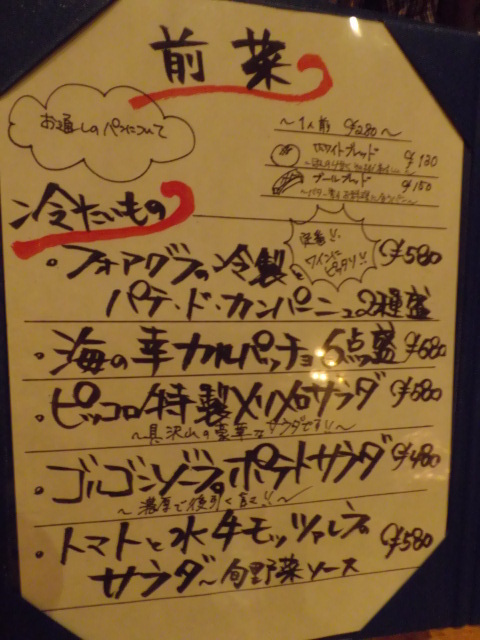 前菜
お通しのパンについて
～1人前 ¥280～
ホワイトブレッド ¥130
ブールブレッド ¥150
冷たいもの
・フォアグラの冷製と ¥580
ワインにピッタリ!!
パテ・ド・カンパーニュ2種盛
・海の幸カルパッチョ5点盛 ¥680
・ピッコロ特製メリメロサラダ ¥680
～具沢山の豪華なサラダです!!～
・ゴルゴンゾーラのポテトサラダ ¥480
～濃厚で後引く旨さ!!～
・トマトと水牛モッツァレラの ¥580
サラダ～旬野菜ソース